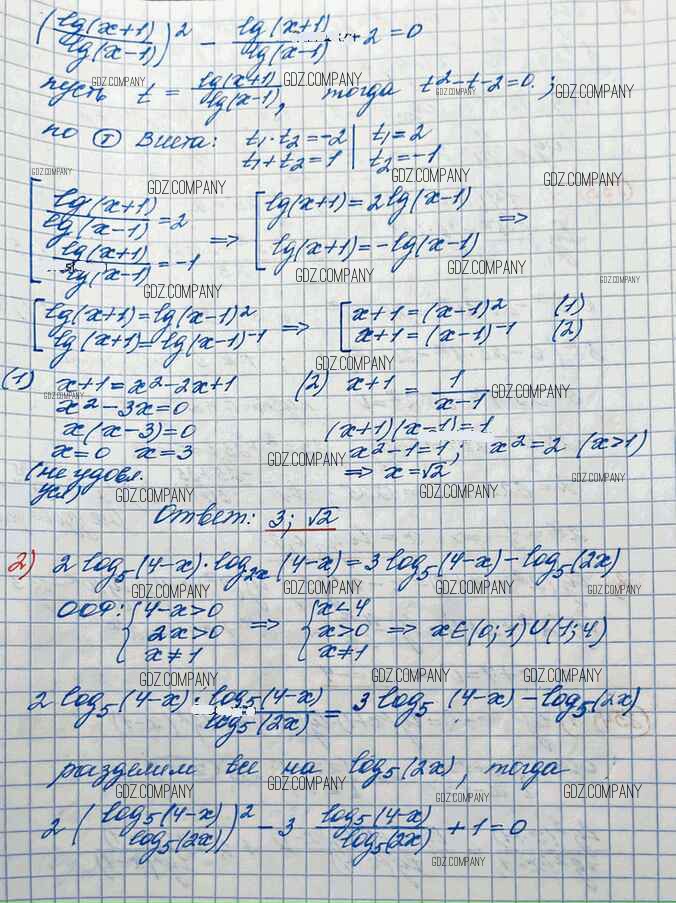 (lg(x+1)/lg(x-1))² - lg(x+1)/lg(x-1) - 2 = 0
пусть t = lg(x+1)/lg(x-1), тогда t²-t-2=0;
по Ⓣ Виета: t₁·t₂=-2 | t₁=2
t₁+t₂=1 | t₂=-1
[ lg(x+1)/lg(x-1) = 2 => [ lg(x+1)=2lg(x-1) =>
lg(x+1)/lg(x-1) = -1 lg(x+1)=-lg(x-1)
[ lg(x+1)=lg(x-1)² => [ x+1=(x-1)² (1)
lg(x+1)=lg(x-1)⁻¹ x+1=(x-1)⁻¹ (2)
(1) x+1=x²-2x+1
x²-3x=0
x(x-3)=0
x=0 x=3
(не удовл.
усл)
(2) x+1 = 1/(x-1)
(x+1)(x-1)=1
x²-1=1; x²=2 (x>1)
=> x=√2
Ответ: 3; √2
2) 2 log₅(4-x)·log₂ₓ(4-x)=3log₅(4-x)-log₅(2x)
ООФ: { 4-x>0 => { x<4
2x>0 x>0 => x∈(0;1)∪(1;4)
x≠1 x≠1
2 log₅(4-x)·log₅(4-x)/log₅(2x) = 3log₅(4-x)-log₅(2x)
разделим все на log₅(2x), тогда
2 (log₅(4-x)/log₅(2x))² - 3 log₅(4-x)/log₅(2x) + 1 = 0
GDZ.COMPANY